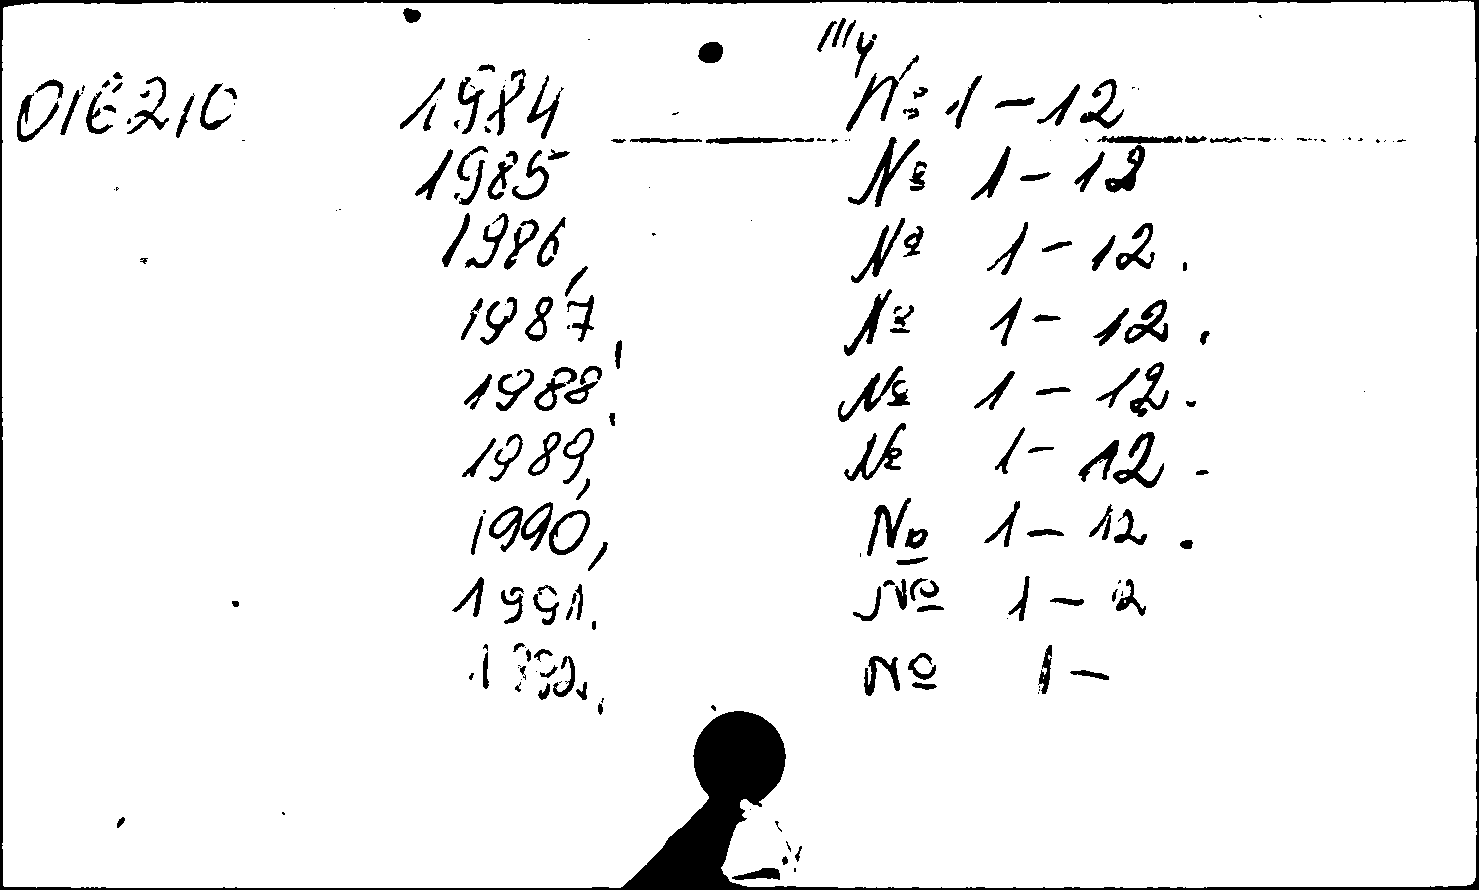 IIIy
01E210 1984 № 1-12
1985 № 1-12
1986, № 1-12.
1987, № 1-12.
1988, № 1-12.
1989, № 1-12.
1990, № 1-12.
1991. № 1-2
1992., № 1-